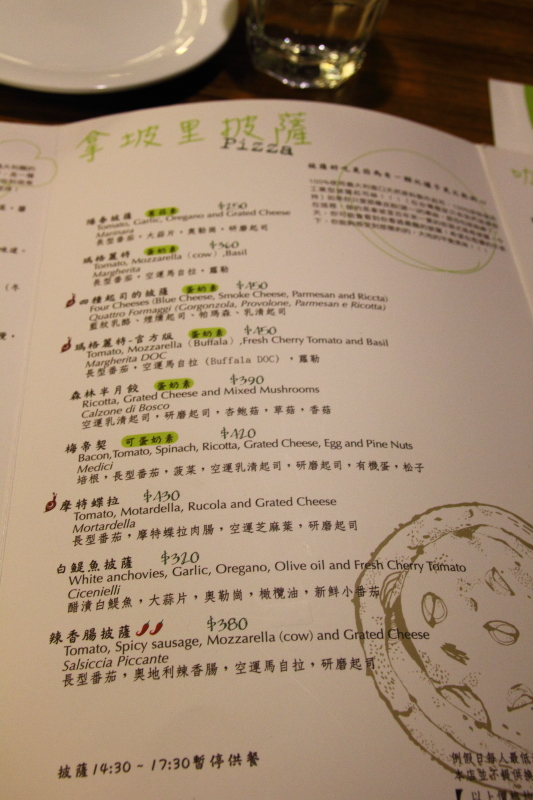 拿坡里披薩
Pizza
陽春披薩 蛋奶素 $250
Tomato, Garlic, Oregano and Grated Cheese
Marinara
長型番茄，大蒜片，奧勒崗，研磨起司
瑪格麗特 蛋奶素 $360
Tomato, Mozzarella (cow) ,Basil
Margherita
長型番茄，空運馬自拉，羅勒
四種起司的披薩 蛋奶素 $450
Four Cheeses (Blue Cheese, Smoke Cheese, Parmesan and Riccta)
Quattro Formaggi (Gorgonzola, Provolone, Parmesan e Ricotta)
藍紋乳酪、煙燻起司、帕瑪森、乳清起司
瑪格麗特-官方版 蛋奶素 $450
Tomato, Mozzarella (Buffala) ,Fresh Cherry Tomato and Basil
Margherita DOC
長型番茄，空運馬自拉 (Buffala DOC) ，羅勒
森林半月餃 蛋奶素 $390
Ricotta, Grated Cheese and Mixed Mushrooms
Calzone di Bosco
空運乳清起司，研磨起司，杏鮑菇，草菇，香菇
梅帝契 可蛋奶素 $420
Bacon,Tomato, Spinach, Ricotta, Grated Cheese, Egg and Pine Nuts
Medici
培根，長型番茄，菠菜，空運乳清起司，研磨起司，有機蛋，松子
摩特蝶拉 $430
Tomato, Motardella, Rucola and Grated Cheese
Mortardella
長型番茄，摩特蝶拉肉腸，空運芝麻葉，研磨起司
白鯷魚披薩 $320
White anchovies, Garlic, Oregano, Olive oil and Fresh Cherry Tomato
Cicenielli
醋漬白鯷魚，大蒜片，奧勒崗，橄欖油，新鮮小番茄
辣香腸披薩 $380
Tomato, Spicy sausage, Mozzarella (cow) and Grated Cheese
Salsiccia Piccante
長型番茄，奧地利辣香腸，空運馬自拉，研磨起司
披薩14:30 - 17:30暫停供餐
例假日每人最低